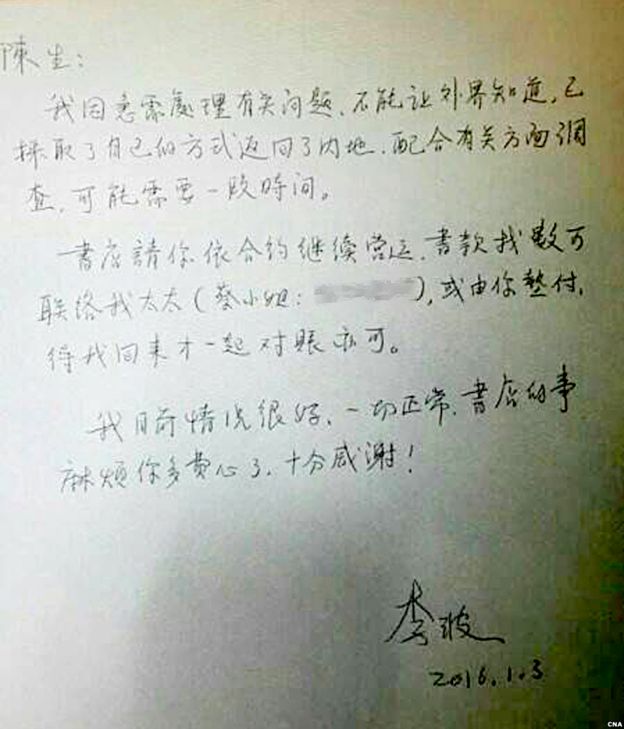 陳生:
我因急需處理有关问题,不能让外界知道,已
採取了自己的方式返回了内地,配合有关方面调
查,可能需要一段時间。
書店請你依合约继续营运,書款找數可
联络我太太(蔡小姐:),或由你墊付,
待我回来才一起对賬亦可。
我目前情况很好,一切正常,書店的事
麻烦你多費心了,十分感謝!
李波
2016.1.3
CNA